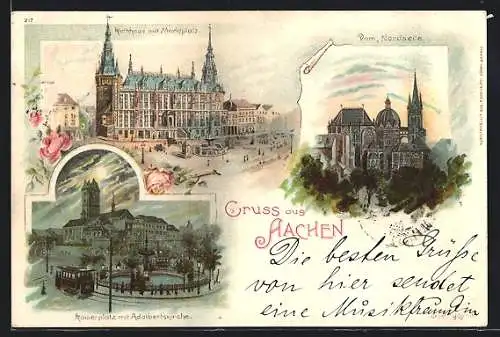 217
Rathhaus mit Marktplatz.
Dom, Nordseite.
Gruss aus
AACHEN
Kaiserplatz mit Adalbertskirche.
Die besten Grüße
von hier sendet
eine Musikfreundin